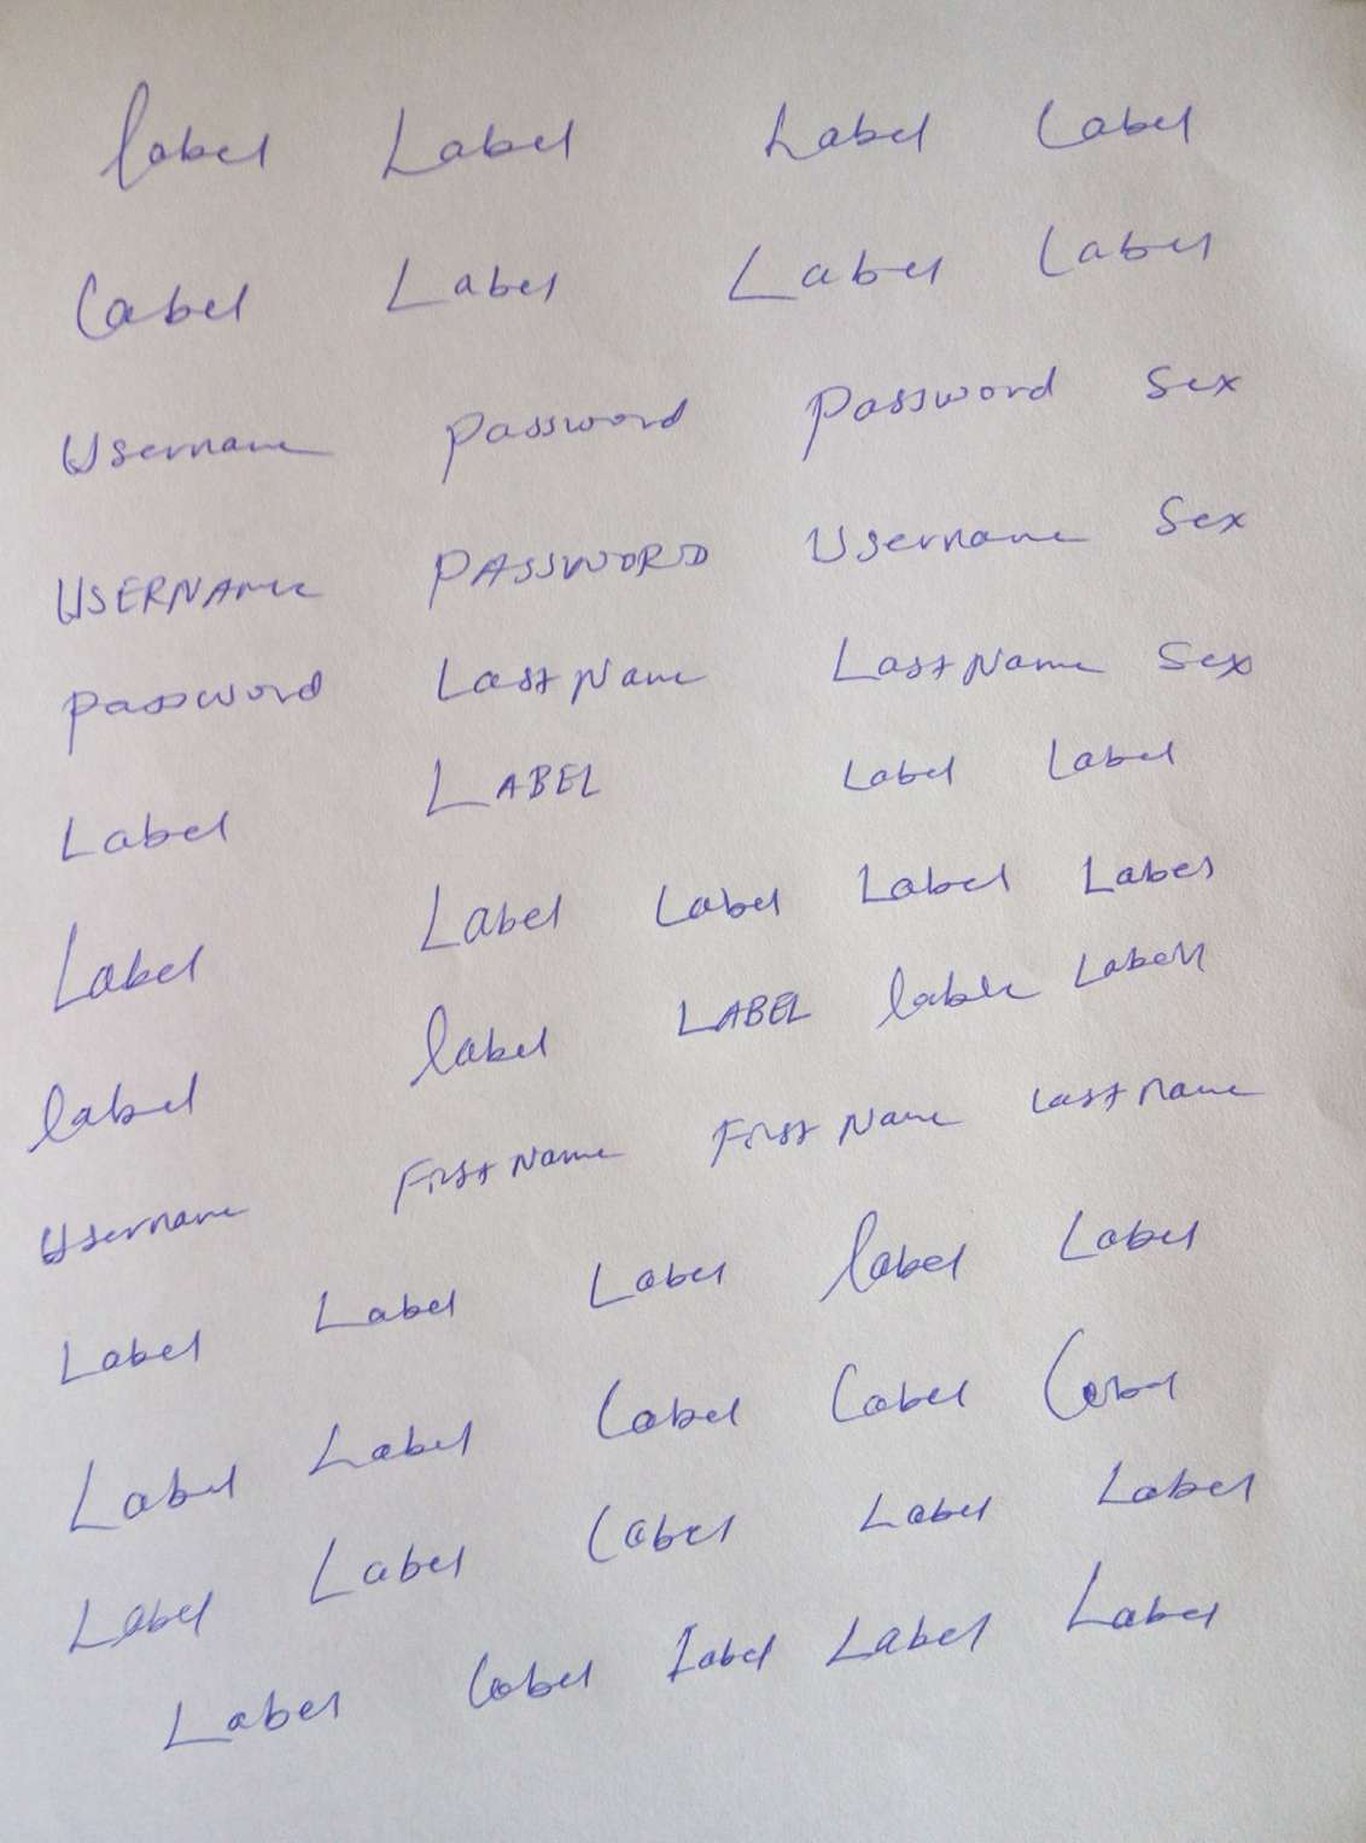 label Label Label Label
Label Label Label Label
Username password password Sex
USERNAME PASSWORD Username Sex
password Last Name Last Name Sex
Label LABEL Label Label
Label Label Label Label Label
label label LABEL lable Label
Username First Name First Name Last name
Label Label Label label Label
Label Label Label Label
Label Label Label Label Label
Label Label Label Label Label